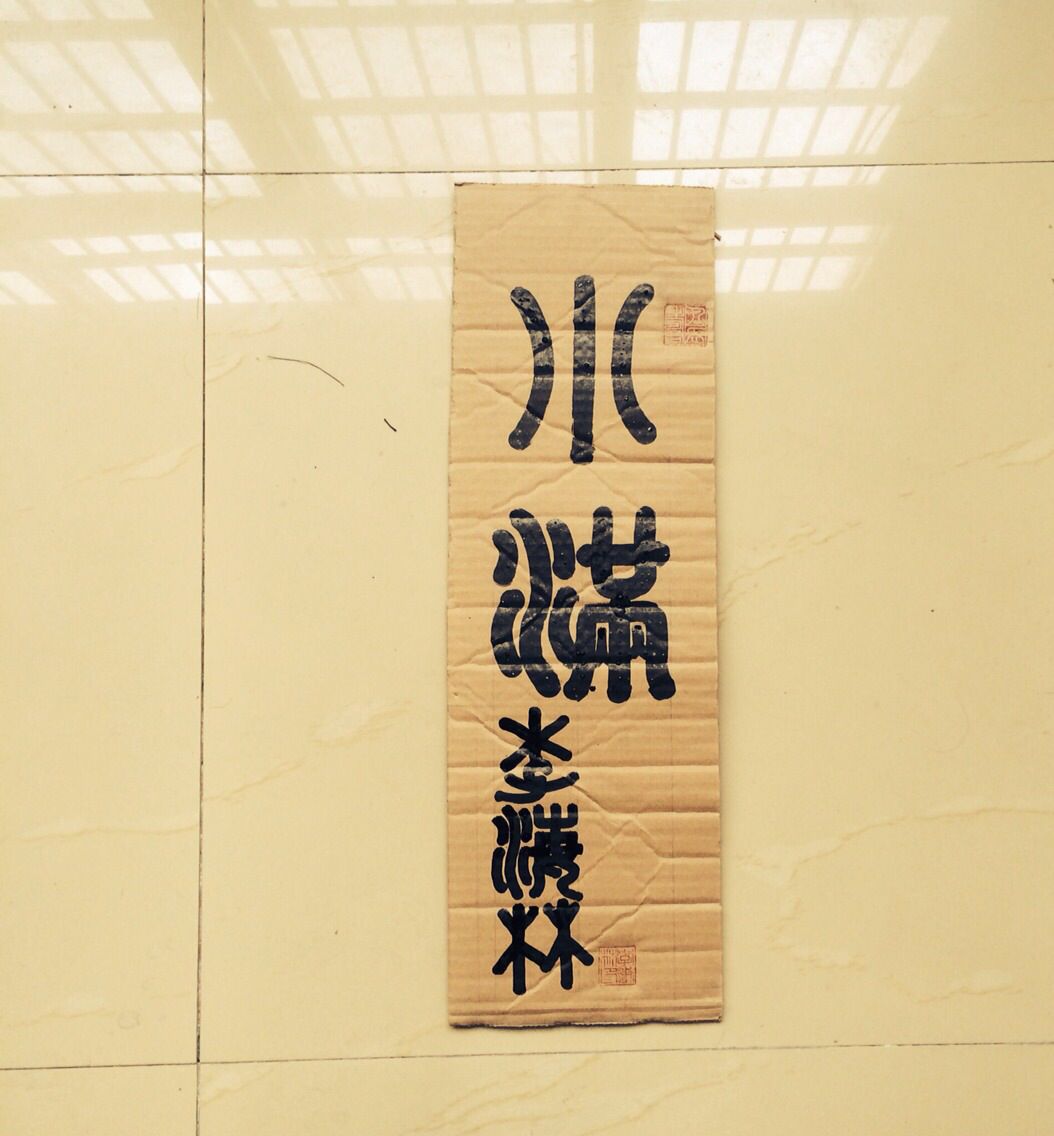 小滿
李漢林